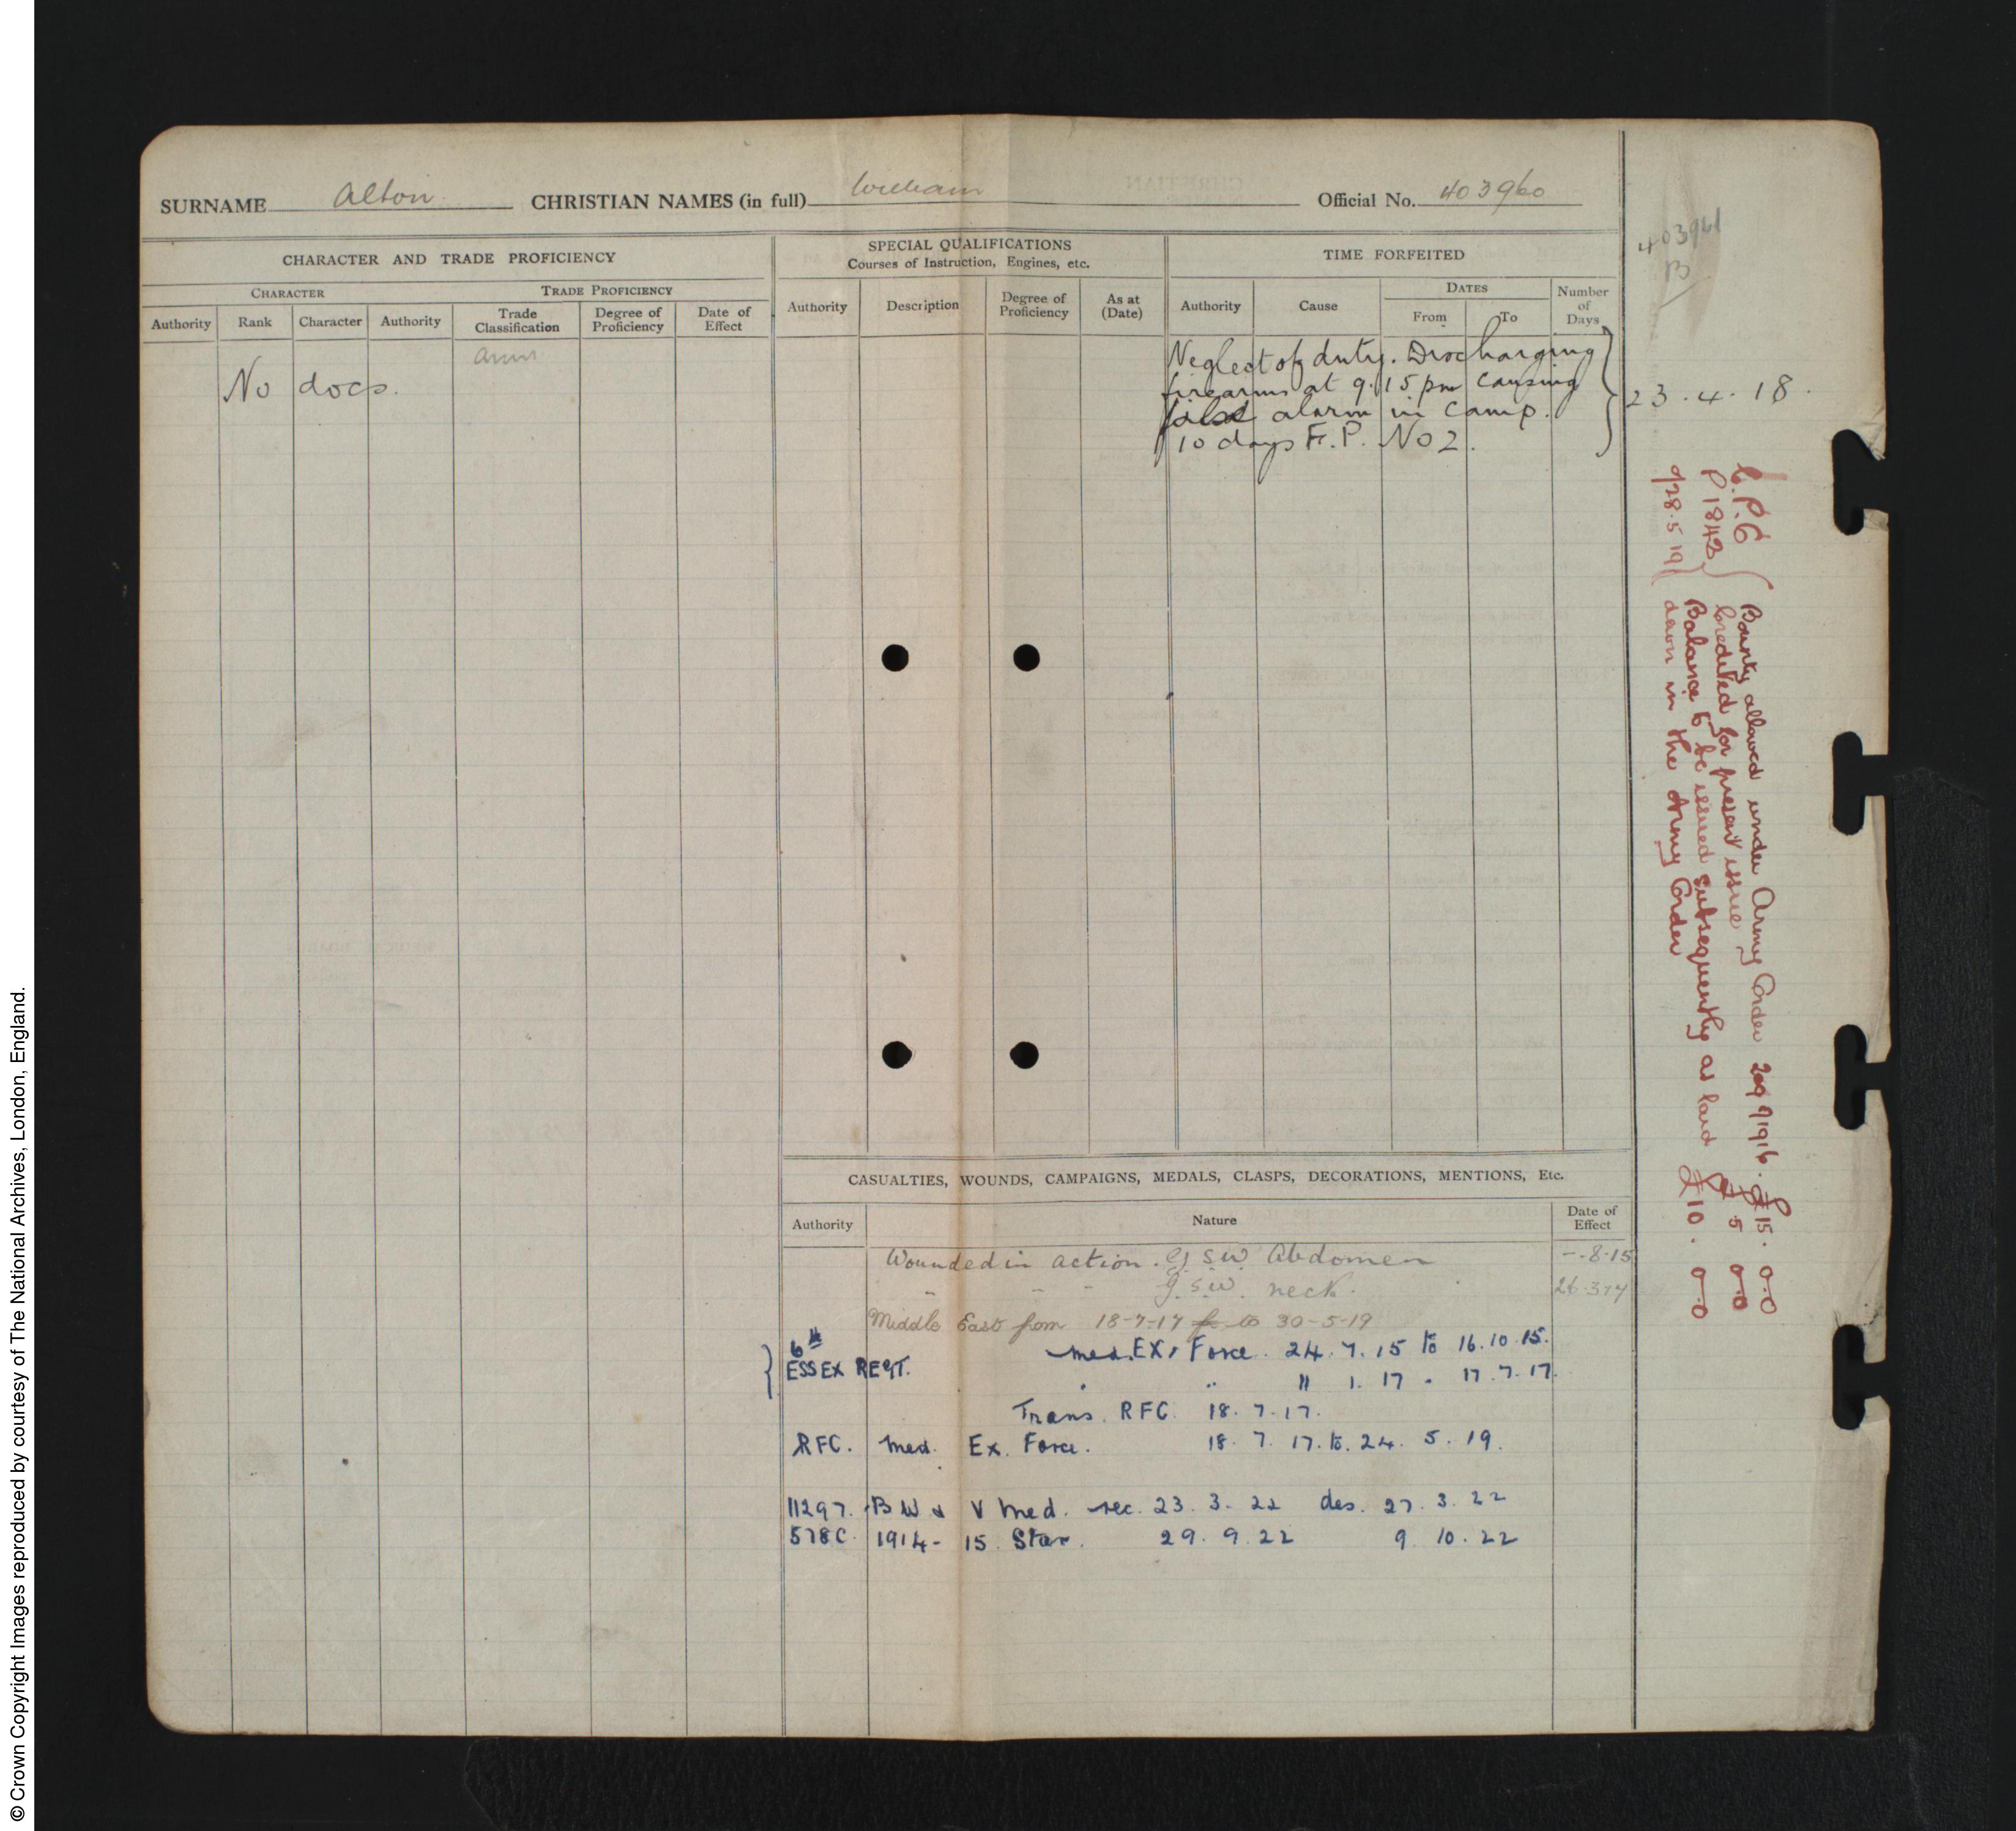 SURNAME Alton CHRISTIAN NAMES (in full) William Official No. 403960
403961
B
CHARACTER AND TRADE PROFICIENCY
SPECIAL QUALIFICATIONS
Courses of Instruction, Engines, etc.
TIME FORFEITED
CHARACTER
TRADE PROFICIENCY
Authority Rank Character Authority Trade Classification Degree of Proficiency Date of Effect
Authority Description Degree of Proficiency As at (Date)
Authority Cause DATES From To Number of Days
No docs.
Neglect of duty. Discharging
firearms at 9.15 pm causing
alarm in camp.
10 days F.P. No 2.
23.4.18.
C.P.6
P1843
28.5.19
Bounty allowed under Army Order 209 1916. £15. 0.0
Credited for present issue £5 0.0
Balance to be issued subsequently as laid £10. 0.0
down in the Army Order
CASUALTIES, WOUNDS, CAMPAIGNS, MEDALS, CLASPS, DECORATIONS, MENTIONS, Etc.
Authority Nature Date of Effect
Wounded in action. G.S.W. Abdomen -.8.15
" " - G.S.W. neck. 26.3.17
Middle East from 18-7-17 to 30-5-19
6th
ESSEX REGT. Med. EX. Force. 24.7.15 to 16.10.15.
" " 11 1. 17 - 17.7.17.
Trans. RFC. 18.7.17.
RFC. Med. Ex. Force. 18.7.17. to. 24.5.19.
11297. B W & V Med. rec. 23.3.22 des. 27.3.22
578C. 1914-15 Star. 29.9.22 9.10.22
© Crown Copyright Images reproduced by courtesy of The National Archives, London, England.